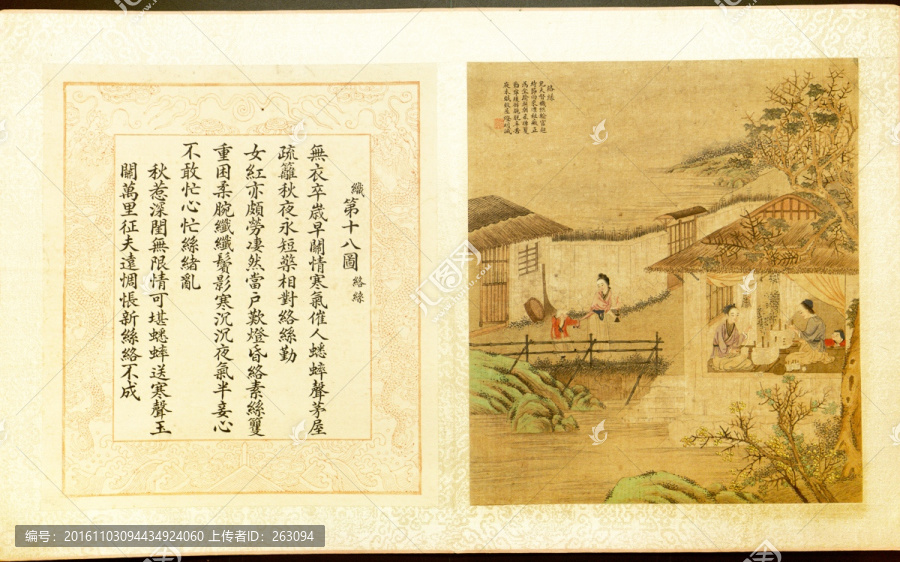 織第十八圖 絡絲
無衣卒歲早關情寒氣催人蟋蟀聲茅屋
疏籬秋夜永短檠相對絡絲勤
女紅亦頗勞淒然當戶歎燈昏絡素絲雙
重困柔腕纖纖鬢影寒沉沉夜氣半妾心
不敢忙心忙絲緒亂
秋惹深閨無限情可堪蟋蟀送寒聲玉
關萬里征夫遠惆悵新絲絡不成
絡絲
编号：20161103094434924060 上传者ID：263094